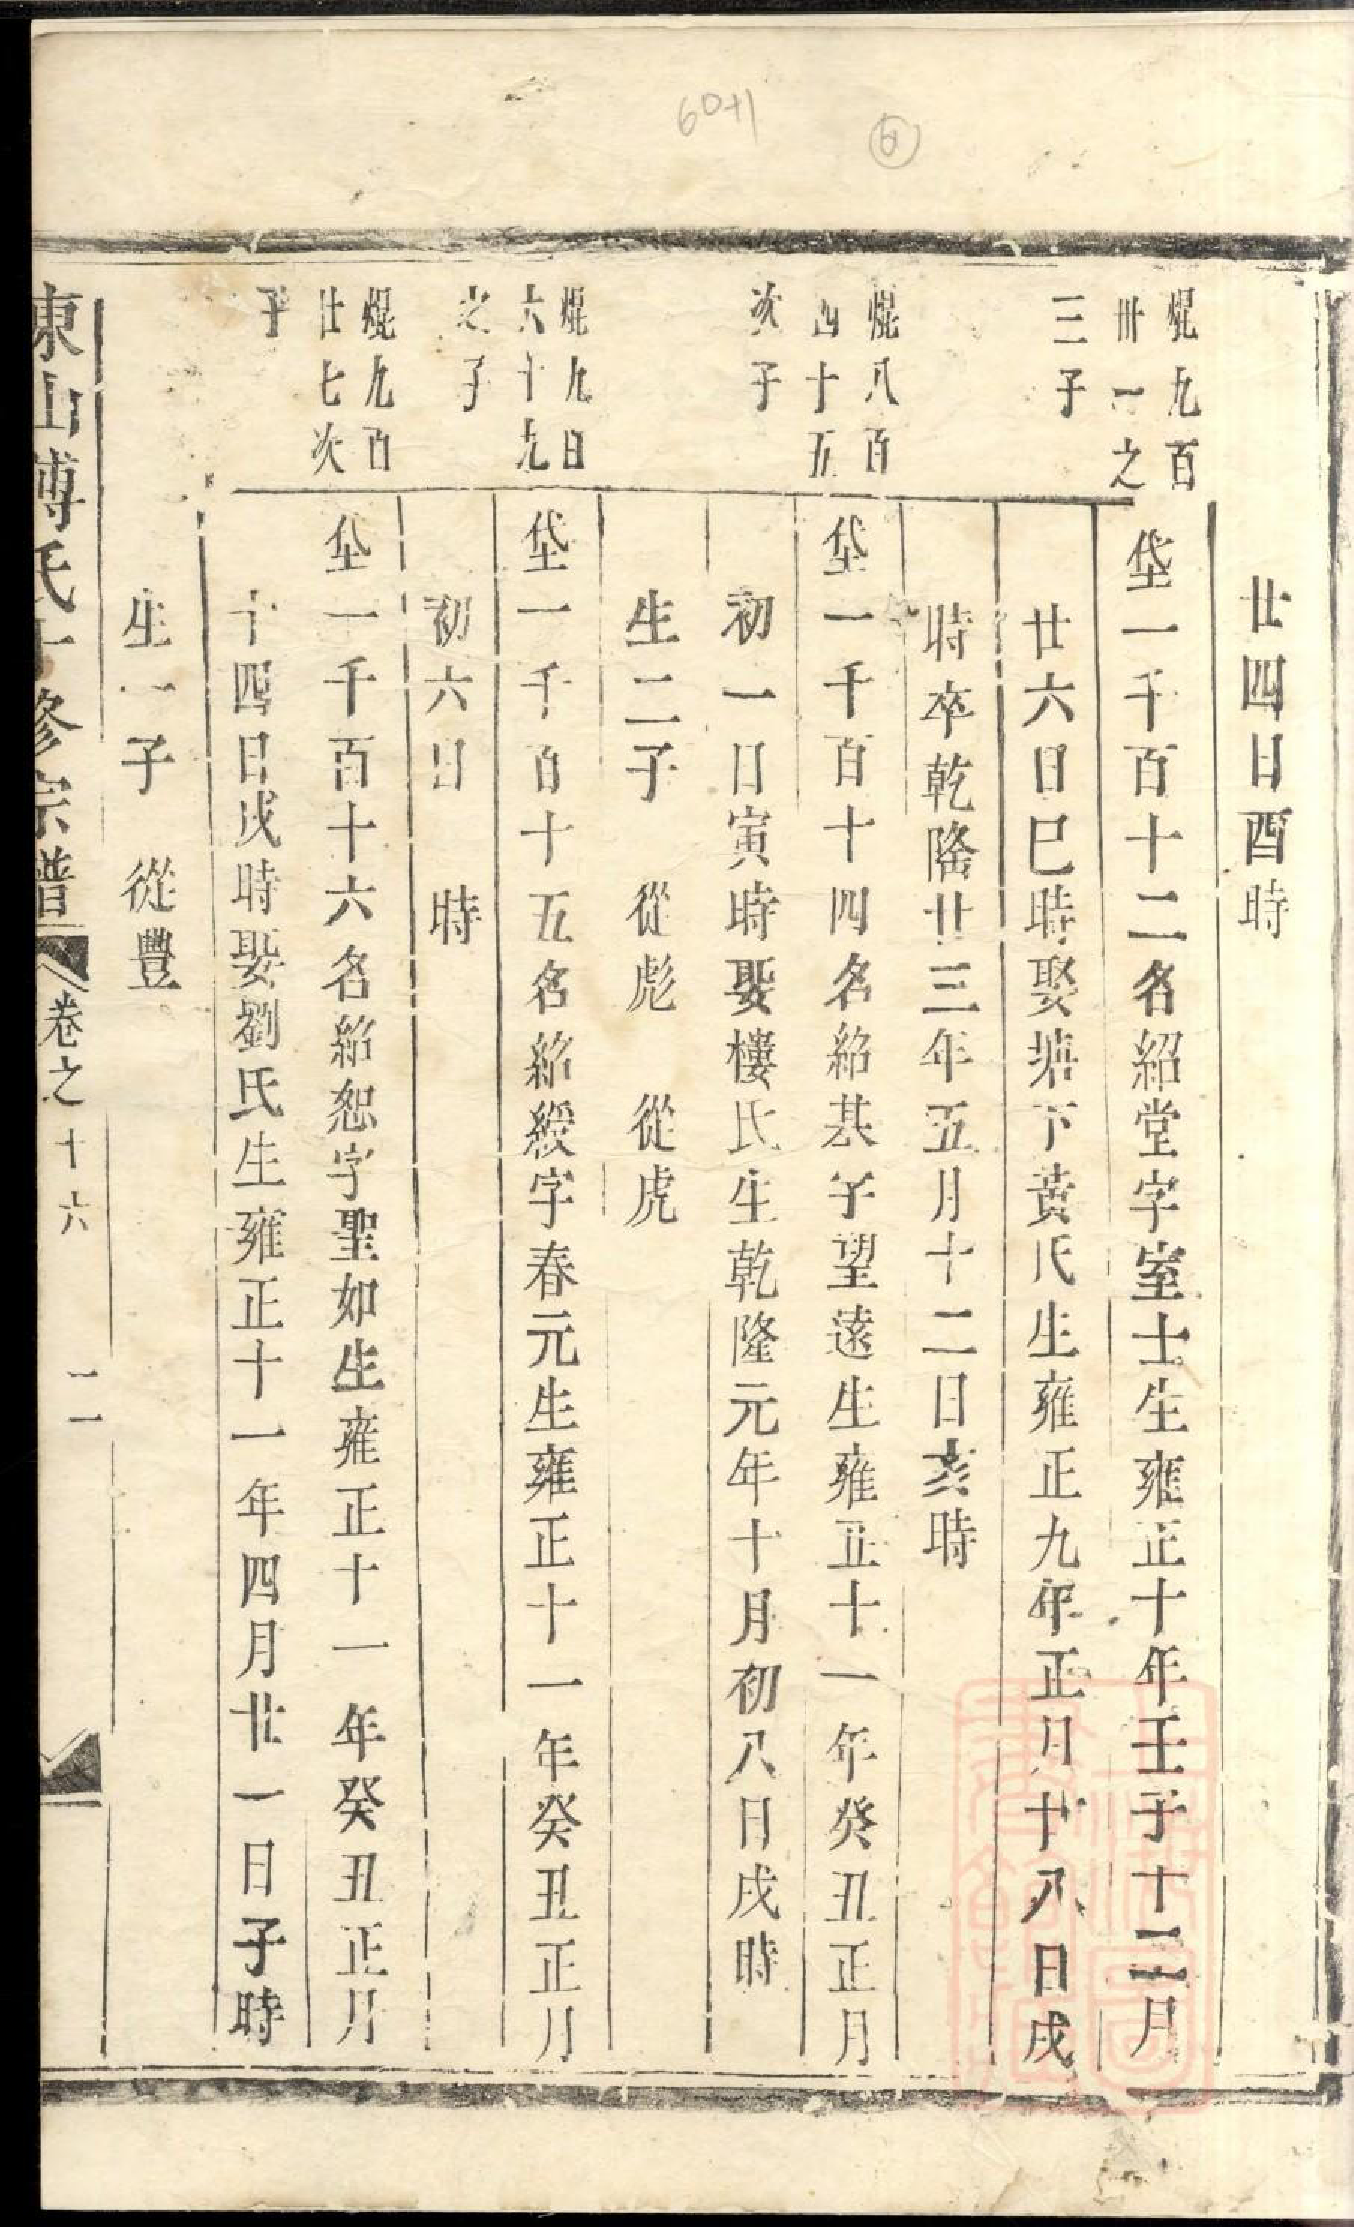 廿四日酉時
焜九百
卅一之
三子
垈一千百十二名紹堂字室士生雍正十年壬子十二月
廿六日巳時娶塘下黃氏生雍正九年正月十八日戌
時卒乾隆廿三年五月十二日亥時
焜八百
四十五
次子
垈一千百十四名紹甚字望遠生雍正十一年癸丑正月
初一日寅時娶樓氏生乾隆元年十月初八日戌時
生二子 從彪 從虎
焜九百
六十九
之子
垈一千百十五名紹緩字春元生雍正十一年癸丑正月
初六日 時
焜九百
廿七次
子
垈一千百十六名紹恕字聖如生雍正十一年癸丑正月
十四日戌時娶劉氏生雍正十一年四月廿一日子時
生一子 從豐
東山傅氏十修宗譜 卷之十六 二
6041
6